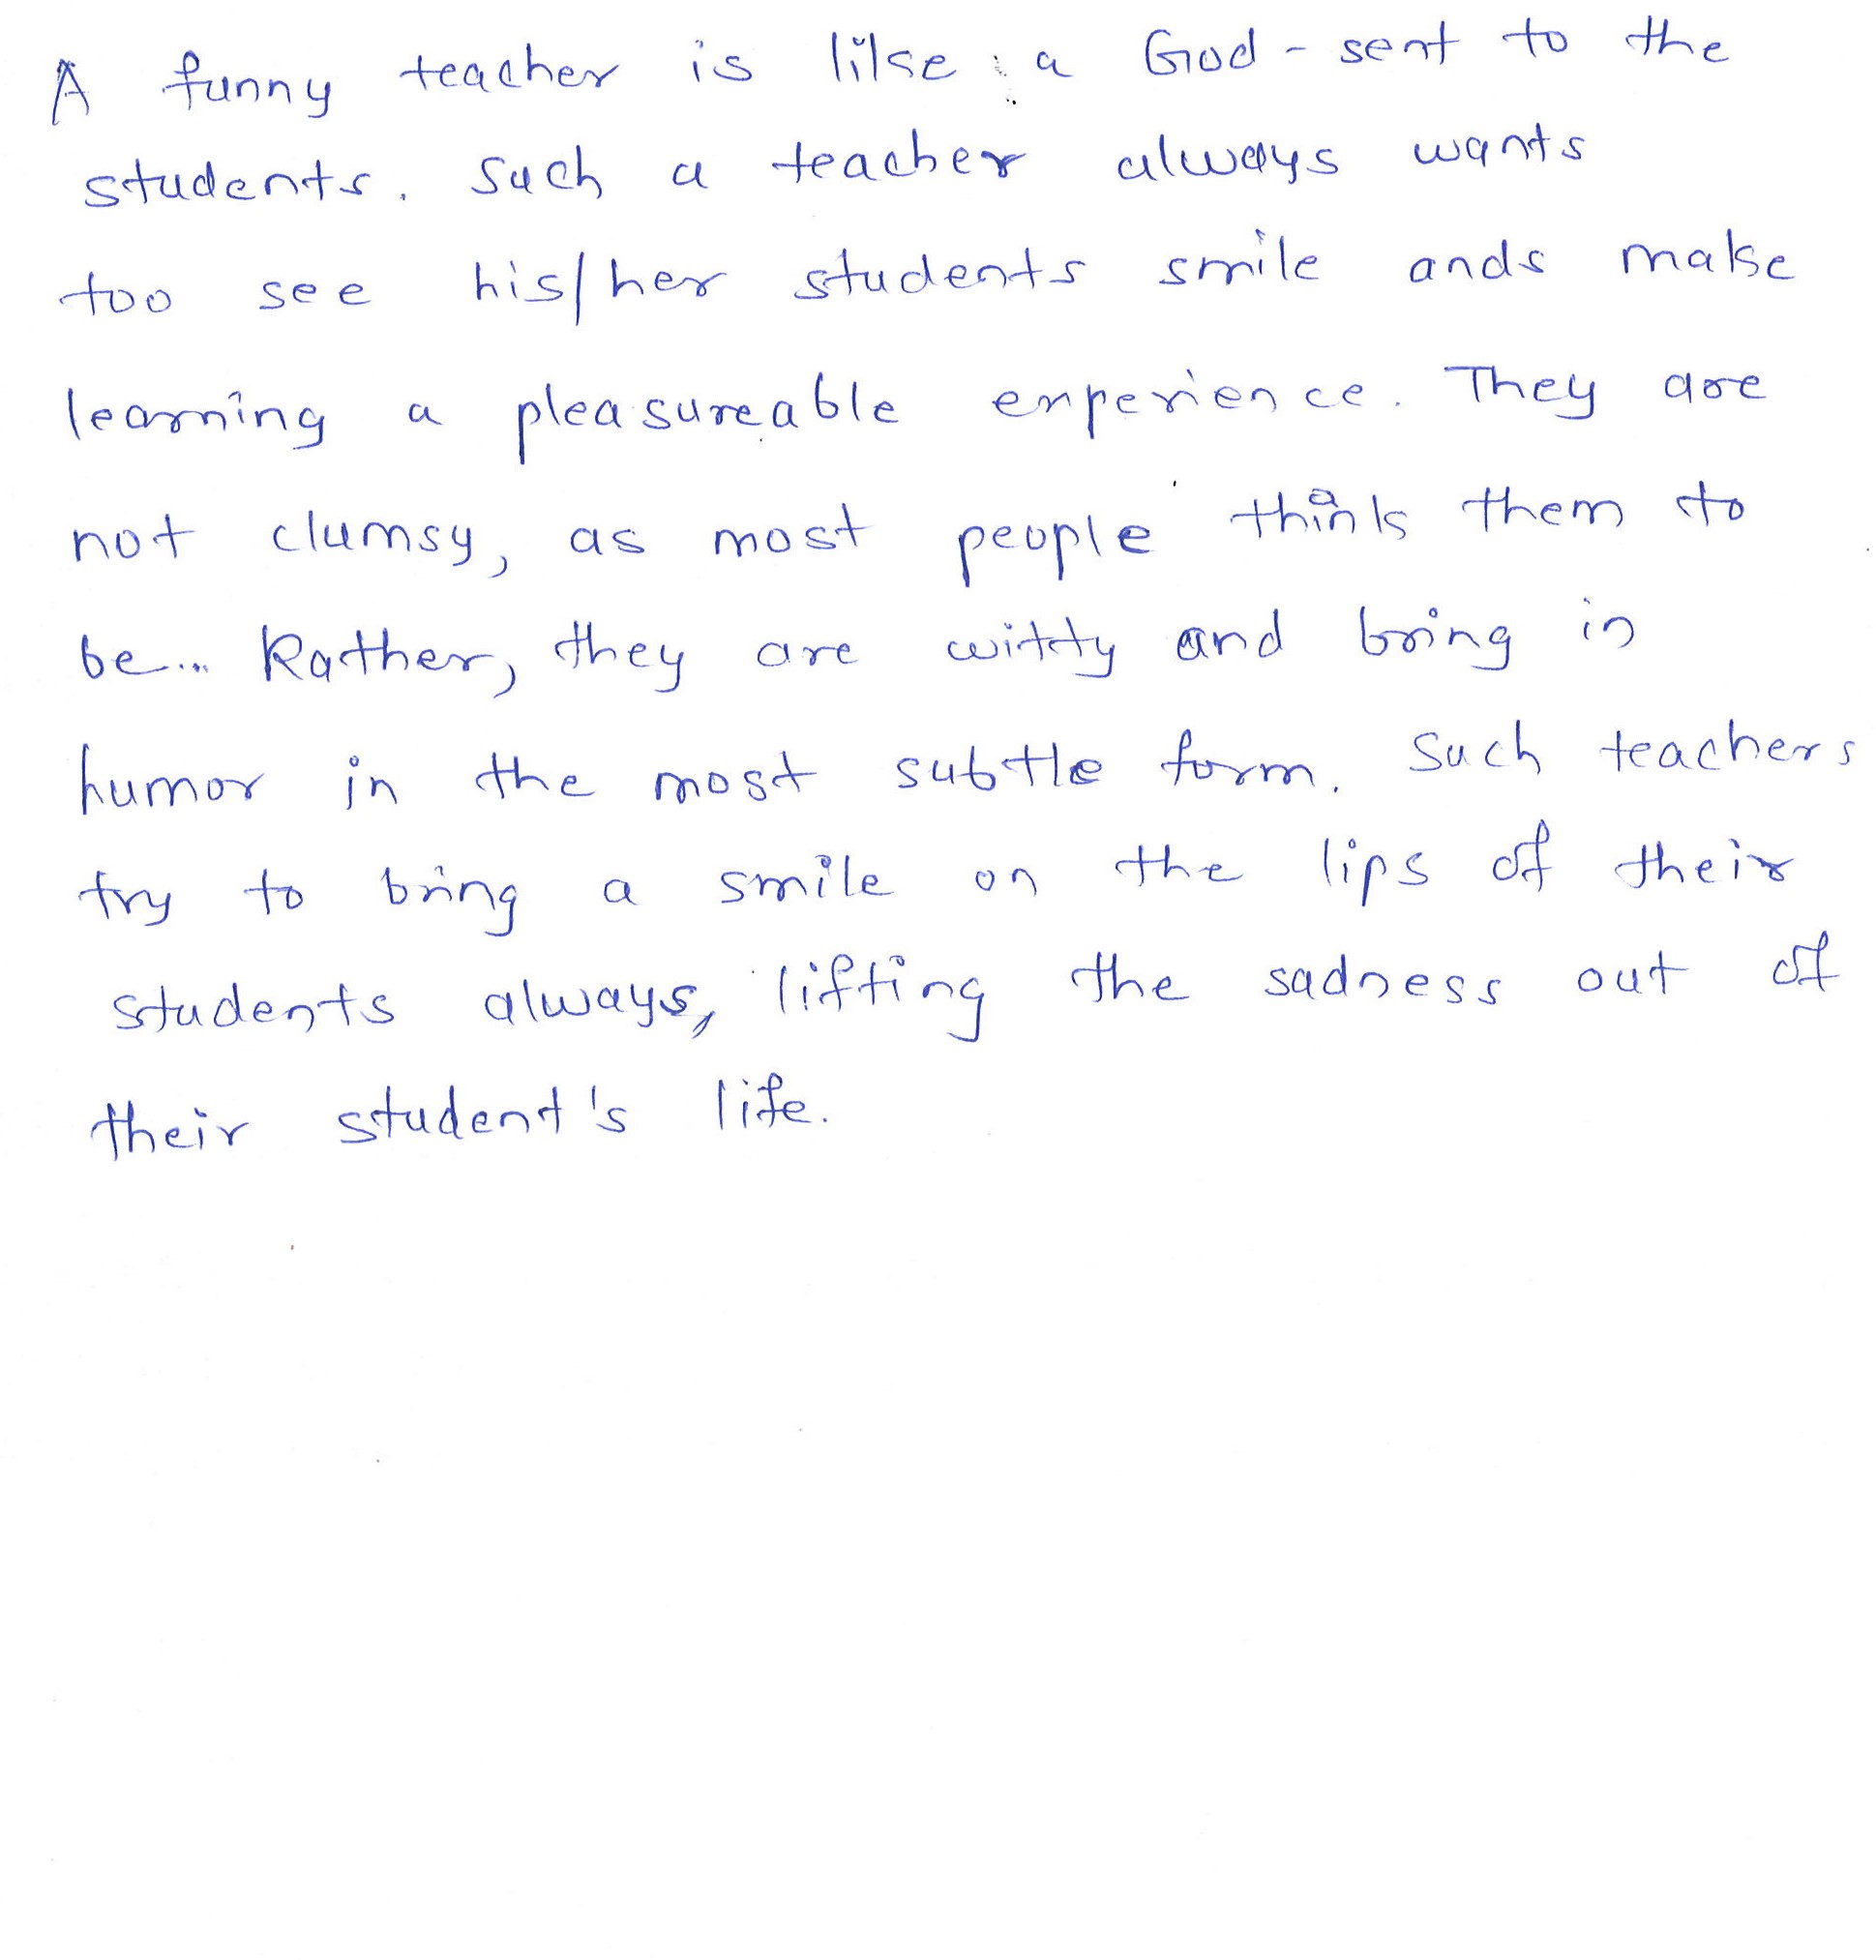 A funny teacher is like a God - sent to the
students. Such a teacher always wants
too see his/her students smile ands make
learning a pleasureable experience. They are
not clumsy, as most people think them to
be... Rather, they are witty and bring in
humor in the most subtle form. Such teachers
try to bring a smile on the lips of their
students always, lifting the sadness out of
their student's life.